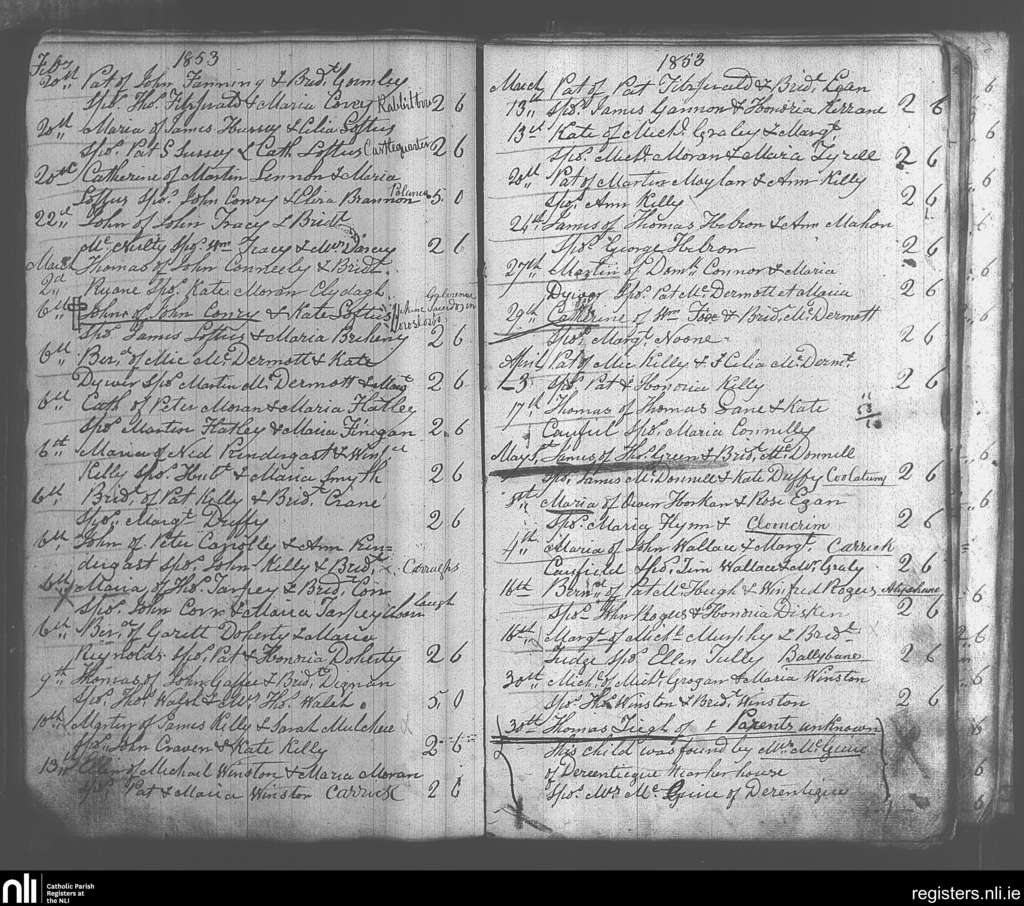 1853
Feby
20th Pat of John Fanning & Bridt Gormley
Spos Thos Fitzgerald & Maria Covey Rabbitt 2 6
20th Maria of James Hussey & Celia Loftus
Spos Pat S Hussey & Cath Loftus Castlequarter 2 6
20th Catherine of Martin Lennon & Maria
Loftus Spos John Conry & Brannon 5 0
22d John of John Tracy & Bridt
McNulty Spos Wm Tracy & Mrs 2 6
March Thomas of John Conneely & Bridt
2d Ruane Spos Kate Moran Clydagh
6th John of John Conry & Kate Loftus
Spos James Loftus & Maria Breheny 2 6
6th Berd of Mic McDermott & Kate
Dywer Spos Martin McDermott & Margt 2 6
6th Cath of Peter Moran & Maria Flatley
Spos Martin Flatley & Maria Finegan 2 6
6th Maria of Ned Prendergast & Winfre
Kelly Spos Hubt & Maria Smyth 2 6
6th Bridt of Pat Kelly & Bridt Crane
Spos Margt Duffy 2 6
6th John of Peter Connolly & Ann Pren=
dergast Spos John Kelly & Bridt
6th Maria of Thos Tarpey & Bridt Corn
Spos John Corn & Maria Tarpey
6th Berd of Garett Doherty & Maria
Reynolds Spos Pat & Honoria Doherty 2 6
9th Thomas of John & Bridt Dignan
Spos Thos Walsh & Mrs Thos Walsh 5 0
10th Martin of James Kelly & Sarah Mulchue
Spos John Craven & Kate Kelly 2 6
13th Ellen of Michael Winston & Maria Moran
Spos Pat & Maria Winston Carrick 2 6
1853
March Pat of Pat Fitzgerald & Bridt Egan
13th Spos James Gannon & Honoria Kerrane 2 6
13th Kate of Michl Graley & Margt
Spos Michl Moran & Maria Tyrell 2 6
20th Pat of Martin Moylan & Ann Kelly
Spos Ann Kelly 2 6
24th James of Thomas Hebron & Ann Mahon
Spos George Hebron 2 6
27th Martin of Domk Connor & Maria
Dywer Spos Pat McDermott et Maria 2 6
29th Catherine of Wm Fox & Bridt McDermott
Spos Margt Noone 2 6
April Pat of Mic Kelly & Celia McDermt
3 Spos Pat & Honoria Kelly 2 6
17th Thomas of Thomas Cane & Kate
Caufiel Spos Maria Connelly
May 1st James of Thos Green & Bridt McDonnell
Spos James McDonnell & Kate Duffy Coolatum 2 6
Maria of Owen Honkan & Rose Egan
Spos Maria Flynn & Clomerim 2 6
4th Maria of John Wallace & Margt Carrick
Caufield Spos Tim Wallace & Mrs Graly 2 6
16th Bernrd of Pat McHugh & Winifred Rogers
Spos John Rogers & Honoria Disken 2 6
16th Margt of Michl Murphy & Bridt
Judge Spos Ellen Tully Ballybane 2 6
30th Michl of Michl Grogan & Maria Winston
Spos Thos Winston & Bridt Winston 2 6
30th Thomas Tiegh of & Parents unknown
This child was found by Mrs McGuire
of Dereenteigue
Spos Mrs McGuire of Derenteigue
nli
Catholic Parish
Registers at
the NLI
registers.nli.ie